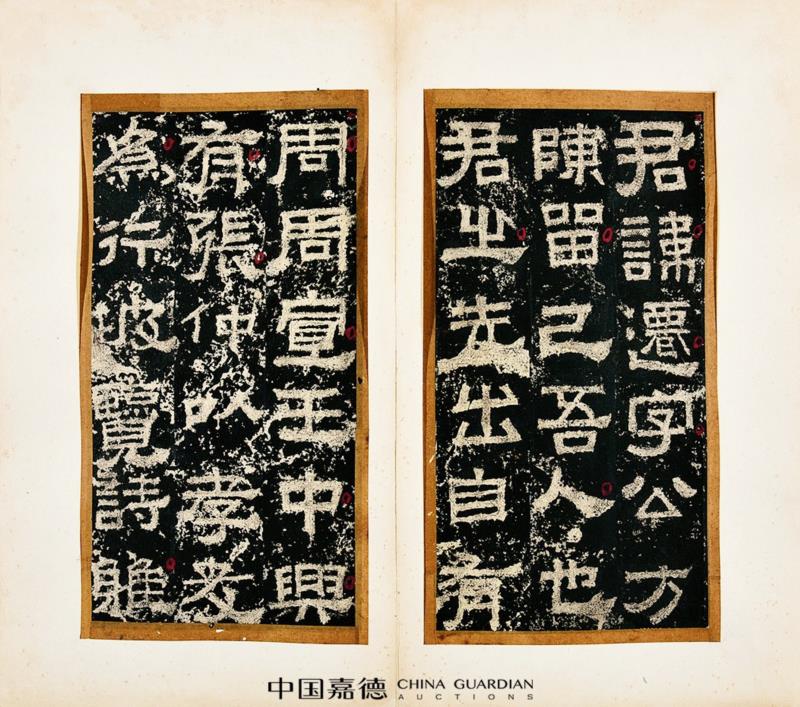 君諱遷字公方
陳留己吾人也
君之先出自有
周周宣王中興
有張仲以孝友
為行披覽詩雅
中国嘉德 CHINA GUARDIAN
AUCTIONS